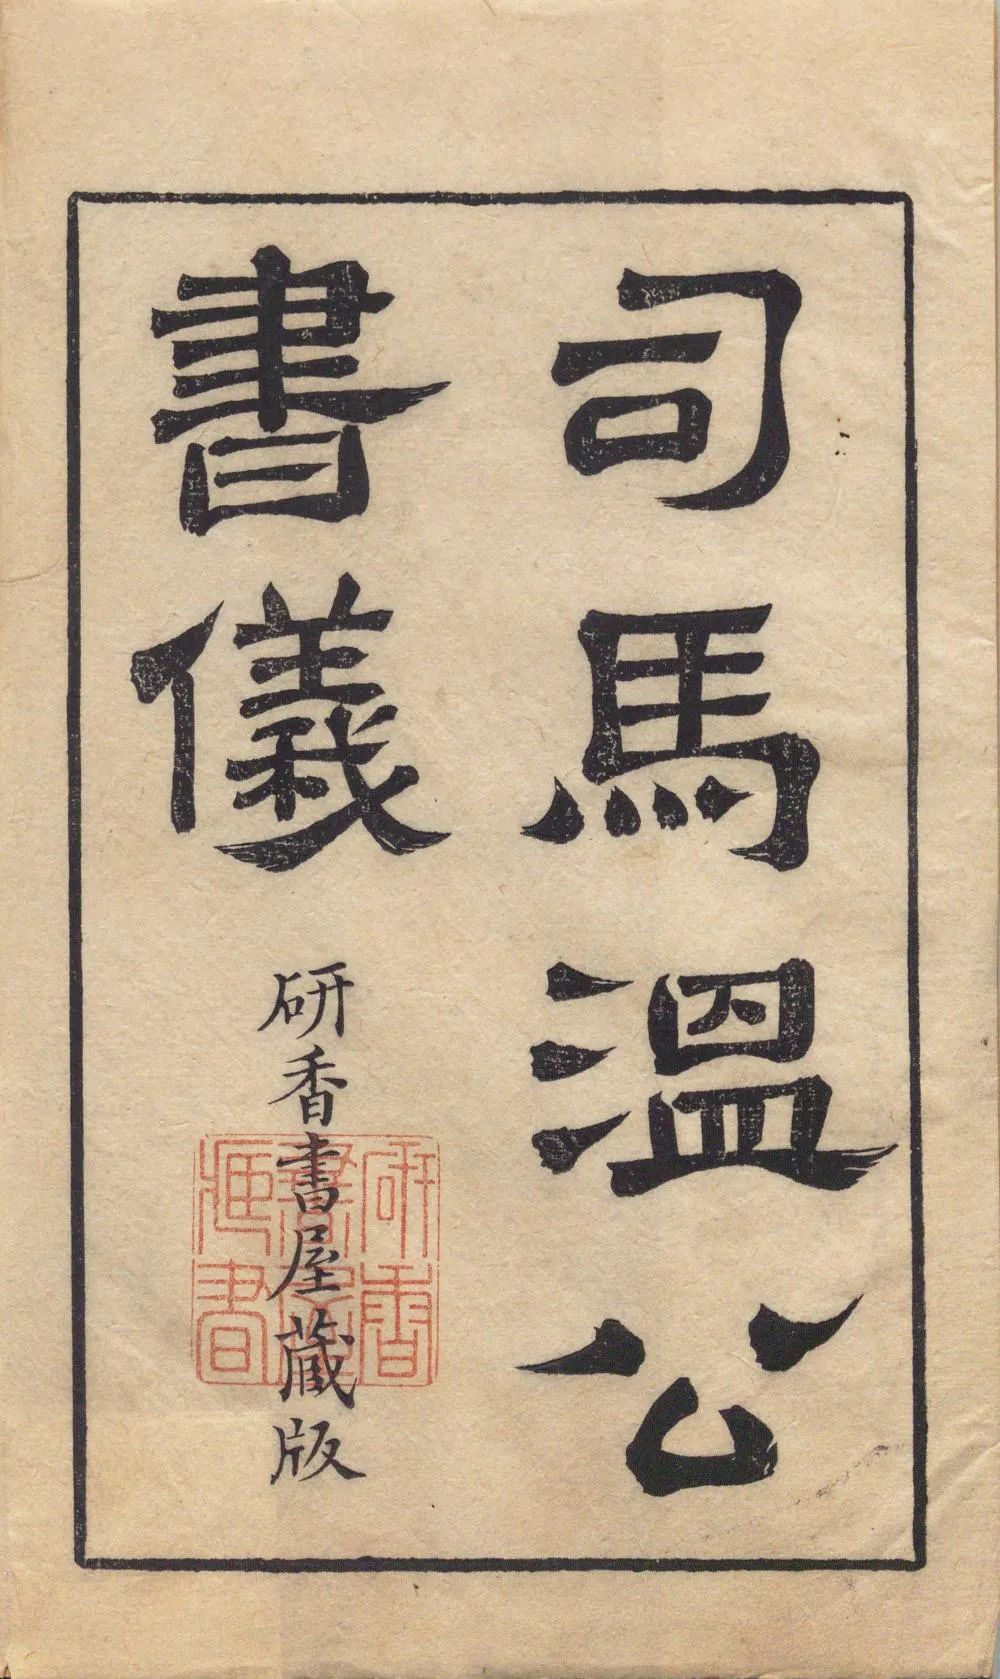 司馬溫公
書儀
研香書屋藏版
研香
書屋
藏書